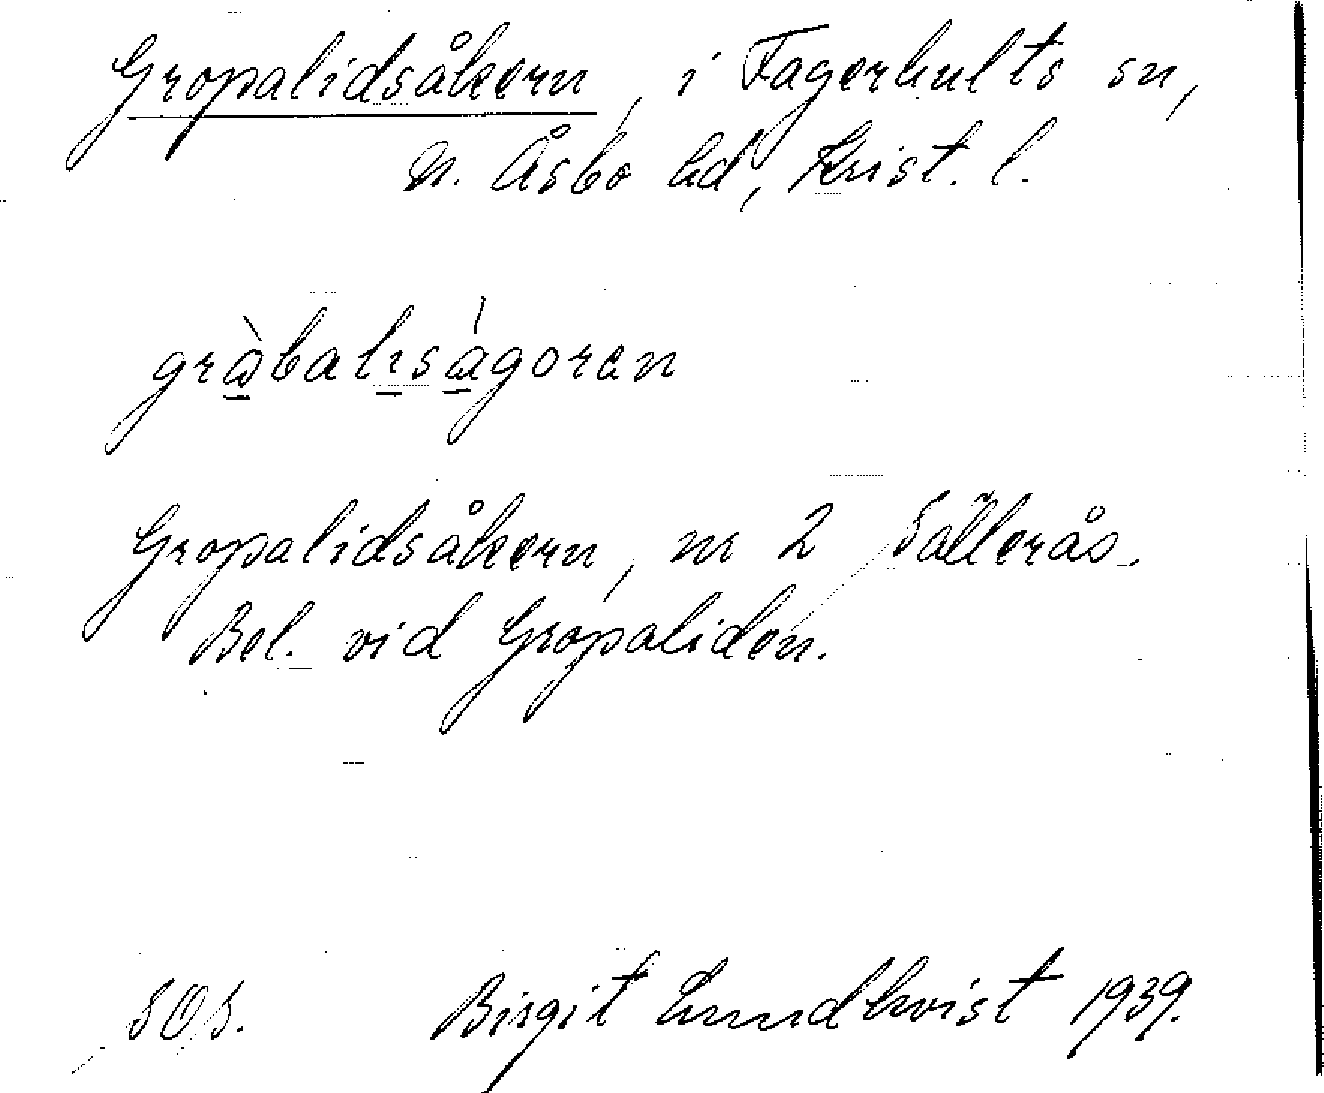 Gropalidsåkern, i Fagerhults sn,
n. Åsbo hd, Krist. l.
gràbalıságoren
Gropalidsåkern, nr 2 Sällerås.
Bel. vid Gropaliden.
SOS. Birgit Lundkvist 1939.